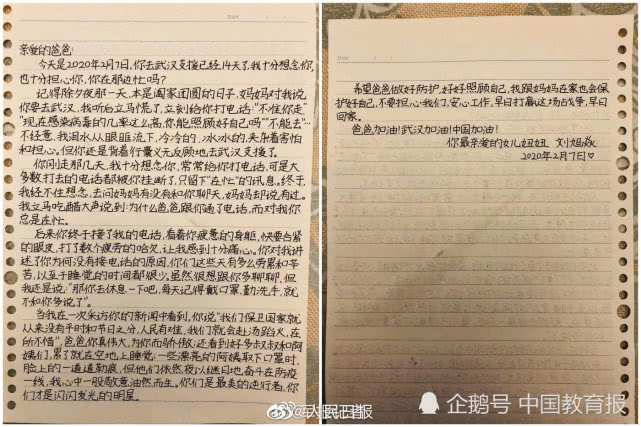 亲爱的爸爸:
今天是2020年2月7日,你去武汉支援已经14天了,我十分想念你,
也十分担心你,你在那边忙吗?
记得除夕夜那一天,本是阖家团圆的日子,妈妈对我说
你要去武汉,我听后立马慌了,立刻给你打电话:"不准你走"
"现在感染病毒的几率这么高,你能照顾好自己吗""不能去"…
不经意,我泪水从眼眶流下,冷冷的,冰冰的,夹杂着害怕
和担心。但你还是背着行囊义无反顾地去武汉支援了。
你刚走那几天,我十分想念你,常常给你打电话,可是大
多数打去的电话都被你挂断了,只留下"在忙"的讯息。终于,
我经不住想念,去问妈妈有没有和你聊天,妈妈却说有过。
我立马吃醋大声说到:为什么爸爸跟你通了电话,而对我你
总是在忙。
后来你终于接了我的电话,看着你疲惫的身躯,快要合紧
的眼皮,打了数个疲劳的哈欠,让我感到十分痛心。你对我讲
述了你为何没有接电话的原因,你们这些天有多么劳累和辛
苦,以至于睡觉的时间都很少,虽然很想跟你多聊聊,但
我还是说:"那你去休息一下吧,每天记得戴口罩,勤洗手,就
不和你多说了"。
当我在一次采访你的新闻中看到,你说"我们保卫国家就
从来没有平时和节日之分,人民有难,我们就会赴汤蹈火,在
所不惜",爸爸你真伟大,为你而骄傲,还看到好多叔叔和阿
姨们,累了就在空地上睡觉;一些漂亮的阿姨取下口罩时,
脸上的一道道勒痕,但他们依然夜以继日地奋斗在防疫
一线,我心中一股敬意油然而生。你们是最美的逆行者,你
们才是闪闪发光的明星。
希望爸爸做好防护,好好照顾自己,我跟妈妈在家也会保
护好自己,不要担心我们,安心工作,早日打赢这场战争,早日
回家。
爸爸加油!武汉加油!中国加油!
你最亲爱的女儿妞妞 刘
2020年2月7日♡
Date
Date
@人民日报
企鹅号 中国教育报